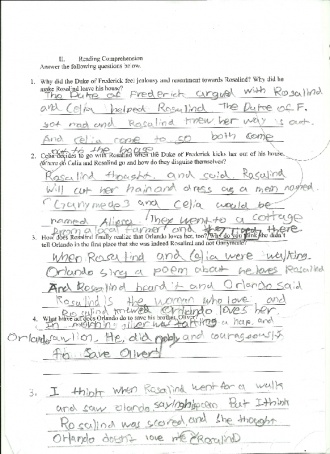 II. Reading Comprehension
Answer the following questions below.
1. Why did the Duke of Frederick feel jealousy and resentment towards Rosalind? Why did he
make Rosalind leave his house?
The Duke of Frederick argued with Rosalind
and Celia helped Rosalind The Duke of F.
got mad and Rosalind knew her way is out.
And celia come to so both come
out to the
2. Celia decides to go with Rosalind when the Duke of Frederick kicks her out of his house.
Where do Celia and Rosalind go and how do they disguise themselves?
Rosalind thought and said Rosalind
will cut her hair and dress as a men named
Ganymede and Celia would be
named Aliena. They went to a cottage
from a local farmer and there
3. How does Rosalind finally realize that Orlando loves her, too? Why do you think she didn't
tell Orlando in the first place that she was indeed Rosalind and not Ganymede?
When Rosalind and Celia were walking.
Orlando sing a poem about he loves Rosalind
And Rosalind heard it and Orlando said
Rosalind is the woman who love and
Rosalind Orlando loves her.
4. What brave act does Orlando do to save his brother, Oliver?
In oliver was taking a nap, and
Orlando saw lion. He did and courageously
to save Oliver!
3. I think when Rosalind went for a walk
and saw olando saying his poem But I think
Rosalind was scared and she thought
Orlando doesn't love me Rosalind